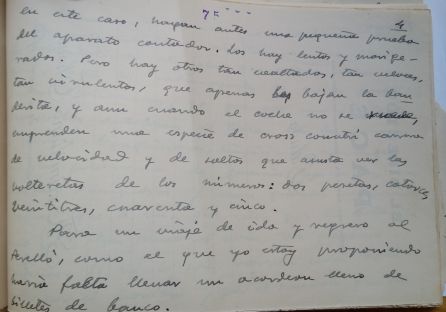 4
en este caso, hagan antes una pequeña prueba
del aparato contador. Los hay lentos y morige-
rados. Pero hay otros tan exaltados, tan veloces,
tan virulentos, que apenas bajan la ban
derita, y aun cuando el coche no se
emprenden una especie de cross country carrera
de velocidad y de saltos que asusta ver las
volteretas de los números: dos pesetas, catorce,
veintitres, cuarenta y cinco.
Para un viaje de ida y regreso al
como el que yo estoy proponiendo
haría falta llenar un acordeon lleno de
billetes de banco.